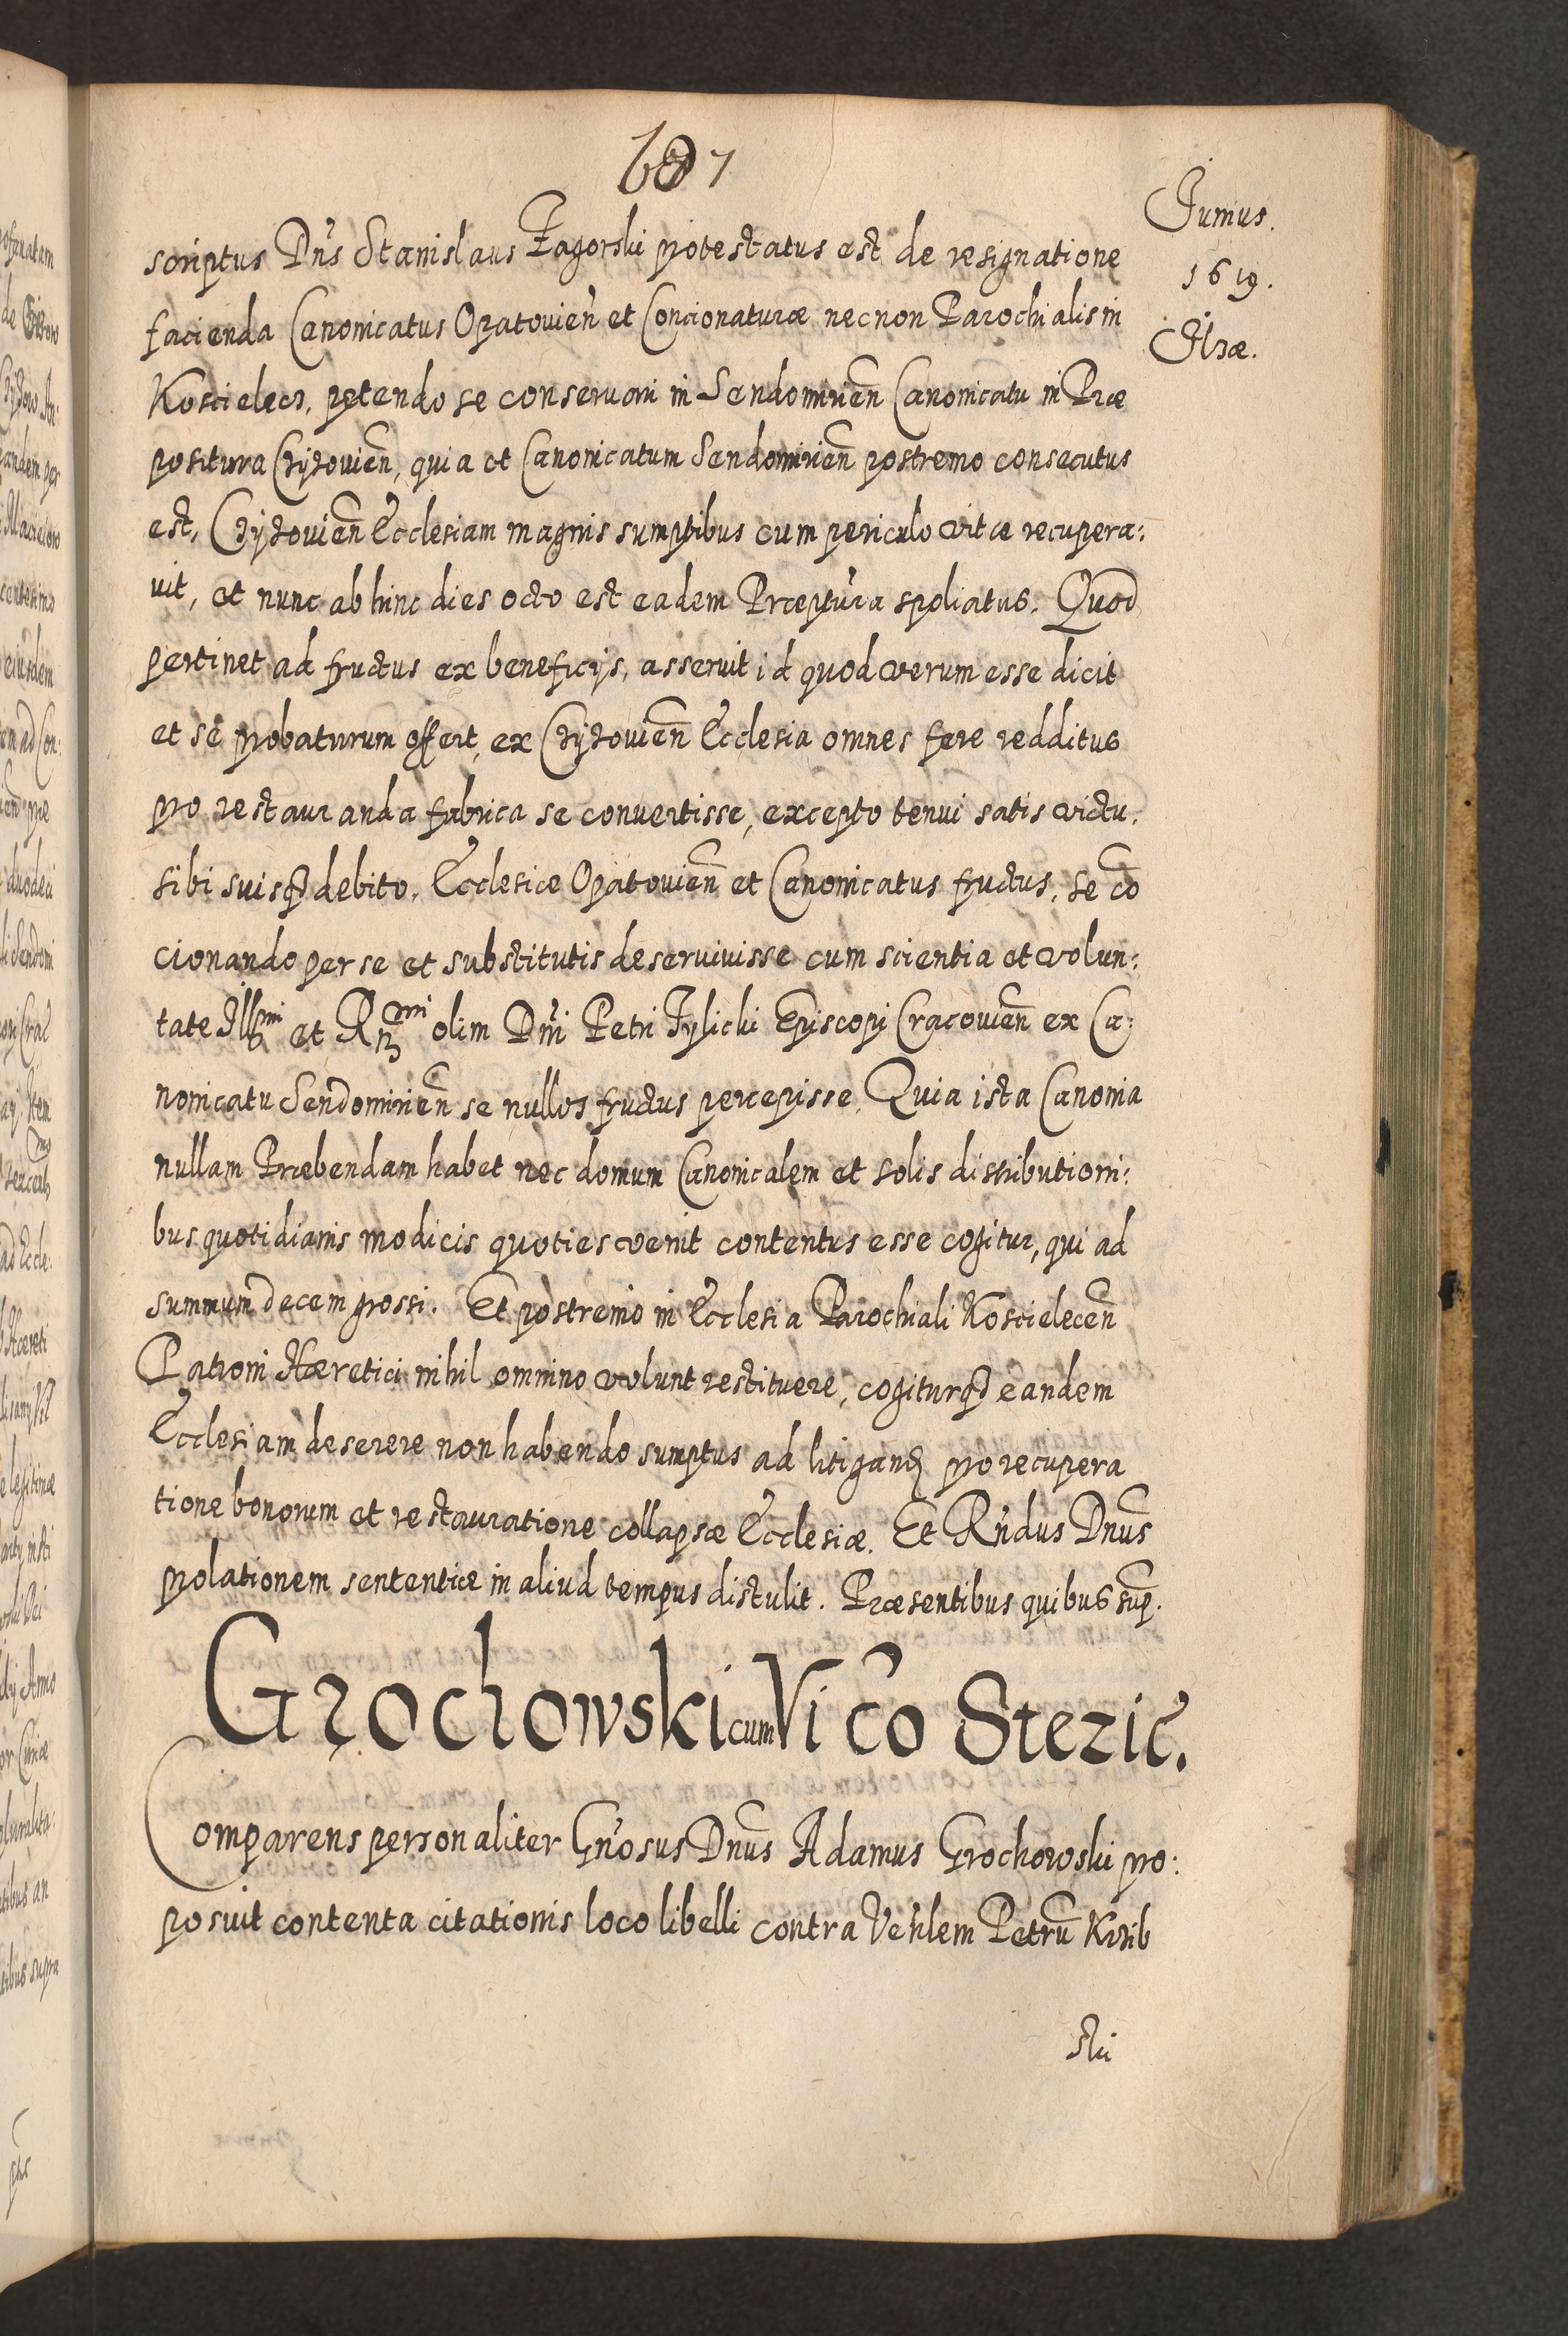 607
Junius.
1619.
Ilzæ.
scriptus Dn̄s Stanislaus Zagorski protestatus est de resignatione
facienda Canonicatus Opatovien̄ et Concionaturæ necnon Parochialis in
Koscielecz, petendo se conservari in Sendomirien̄ Canonicatu in Præ
positura Chijzovien̄, quia et Canonicatum Sendomirien̄ postremo consecutus
est, Chijzovien̄ Ecclesiam magnis sumptibus cum periculo vitæ recupera:
vit, et nunc ab hinc dies octo est eadem Præptūra spoliatus. Quod
pertinet ad fructus ex beneficijs, asseruit id quod verum esse dicit
et se probaturum offert, ex Chijzovien̄ Ecclesia omnes fere redditus
pro restauranda fabrica se convertisse, excepto tenui satis victu,
sibi suisq3 debito, Ecclesiæ Opatovien̄ et Canonicatus fructus, se cō
cionando per se et substitutis deservivisse cum scientia et volun:
tate Illmi et Rmi olim Dn̄i Petri Tylicki Episcopi Cracovien̄ ex Ca:
nonicatu Sendomirien̄ se nullos fructus percepisse. Quia ista Canonia
nullam Præbendam habet nec domum Canonicalem et solis distributioni:
bus quotidianis modicis quoties venit contentus esse cogitur, qui ad
summum decem grossi. Et postremo in Ecclesia Parochiali Koscielecen̄
Patroni Hæretici nihil omnino volunt restituere, cogiturq3 eandem
Ecclesiam deserere non habendo sumptus ad litigand pro recupera
tione bonorum et restauratione collapsæ Ecclesiæ. Et Rn̄dus Dnūs
prolationem sententiæ in aliud tempus distulit. Præsentibus quibus sup̄.
Grochowski cum Vico Stezic̄.
Comparens personaliter Gn̄osus Dnūs Adamus Grochowski pro:
posuit contenta citationis loco libelli contra Ven̄lem Petrū
ski